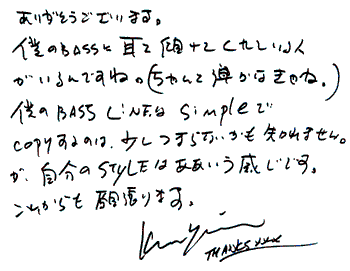 ありがとうございます。
僕のBASSに耳を傾けてくれている人
がいるんですね。(ちゃんと弾かなきゃね。)
僕のBASS LINEはsimpleで
copyするのは、少しつまらないかも知れません。
が、自分のSTYLEはああいう感じです。
これからも頑張ります。
THANKS xxx